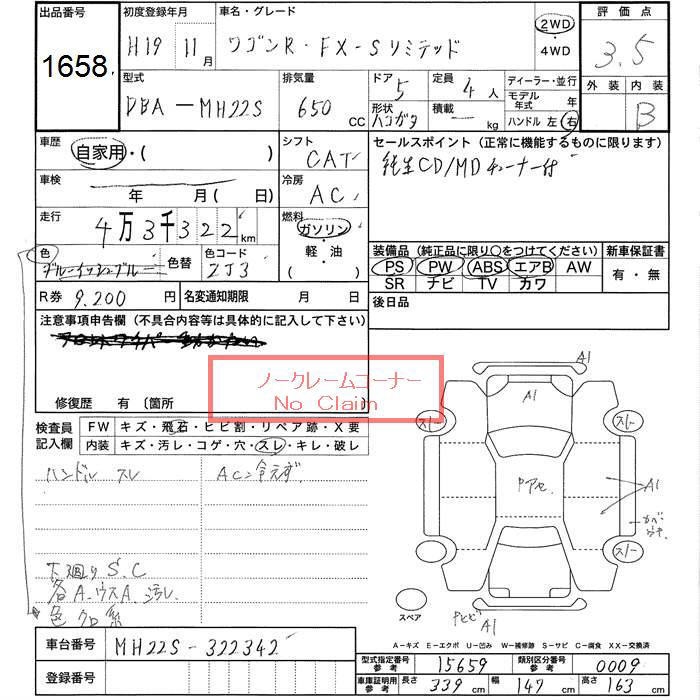 出品番号
1658
初度登録年月
H19 11月
車名・グレード
ワゴンR・FX-Sリミテッド
2WD
・4WD
評価点
3.5
外装 内装
B
型式
DBA-MH22S
排気量
650 CC
ドア
5
形状
ハコガタ
定員
4人
積載
kg
ディーラー・並行
モデル年式 年
ハンドル 左・右
車歴
自家用・( )
車検
年 月( 日)
走行
4万3千322km
色
ブルーイッシュブルー
色替
色コード
ZJ3
シフト
CAT
冷房
AC
燃料
ガソリン
・軽・油
( )
R券 9.200円
名変通知期限 月 日
セールスポイント(正常に機能するものに限ります)
純正CD/MDチューナー付
装備品(純正品に限り〇をつけてください)
PS PW ABS エアB AW
SR ナビ TV カワ
新車保証書
有・無
後日品
注意事項申告欄(不具合内容等は具体的に記入して下さい)
修復歴 有〔箇所
ノークレームコーナー
No Claim
検査員記入欄
FW キズ・飛石・ヒビ割・リペア跡・X要
内装 キズ・汚レ・コゲ・穴・スレ・キレ・破レ
ハンドル スレ
AC冷えず
下廻りS.C
各A・ウスA.汚レ
色クロ系
A1
A1
スレ
スレ
PアセA1
スレ
スペア
A1
A-キズ E-エクボ U-凹み W-補修跡 S-サビ C-腐食 XX-交換済
車台番号
MH22S-322342
登録番号
型式指定番号参考
15659
類別区分番号参考
0009
車庫証明用参考
長さ 339cm 幅 147cm 高さ 163cm